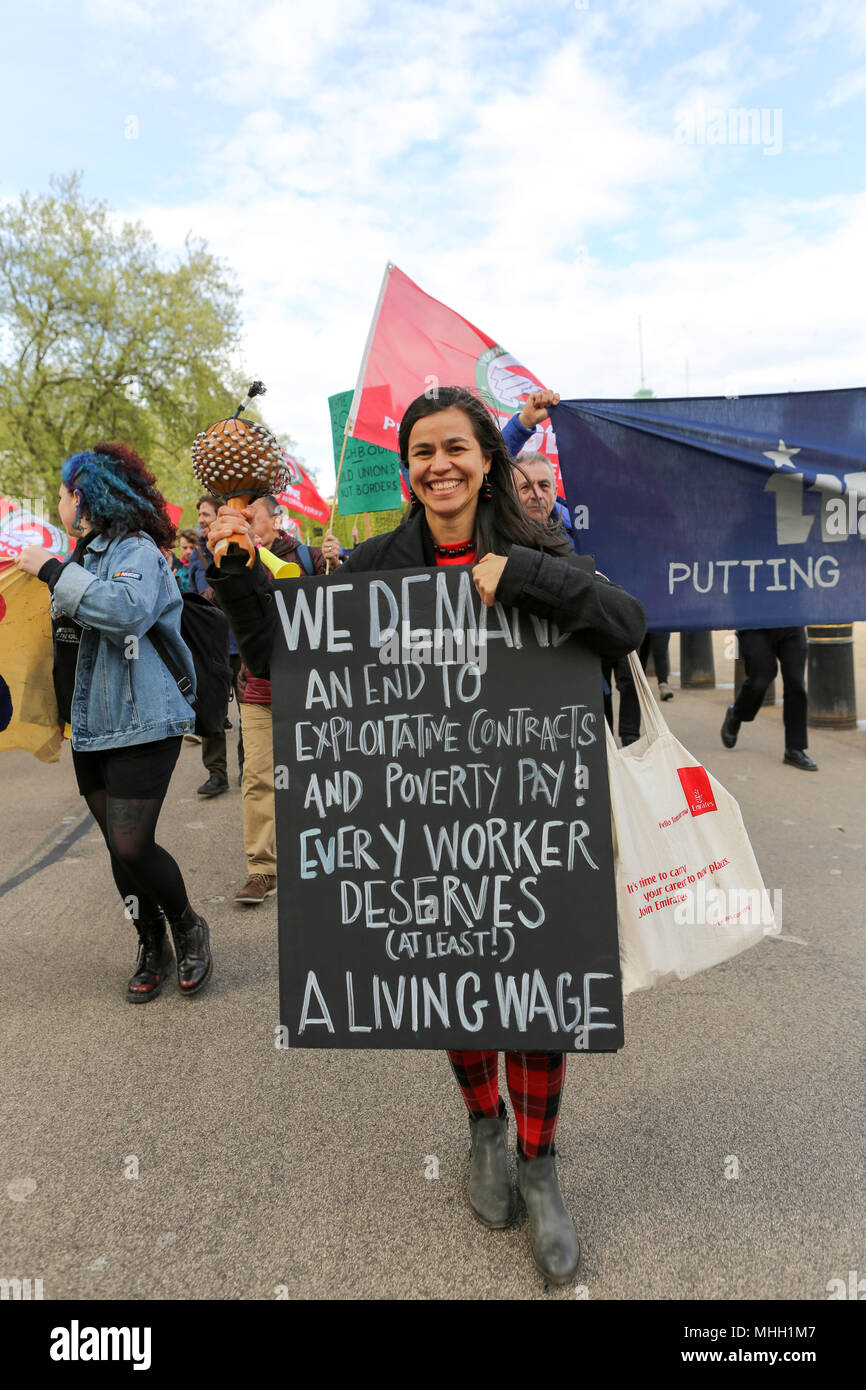 BUILD UNIONS
NOT BORDERS
PUTTING
WE DEMAND
AN END TO
EXPLOITATIVE CONTRACTS
AND POVERTY PAY!
EVERY WORKER
DESERVES
(AT LEAST!)
A LIVING WAGE
Emirates
Hello Tomorrow
It's time to carry
your career to new places.
Join Emirates.
alamy
Image ID: MHH1M7
www.alamy.com